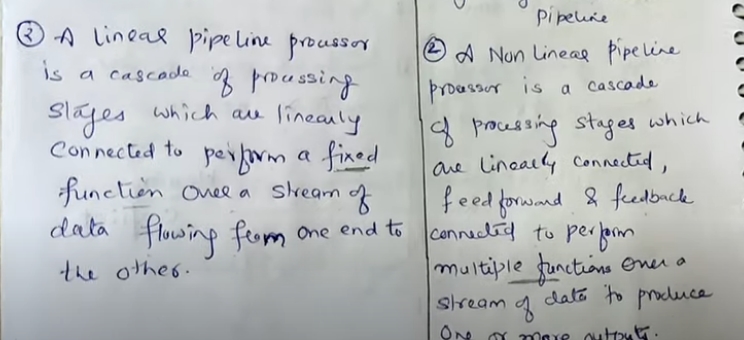 ② A linear pipeline processor
is a cascade of processing
stages which are linearly
Connected to perform a fixed
function over a stream of
data flowing from one end to
the other.
pipeline
② A Non Linear Pipeline
processor is a cascade
of processing stages which
are linearly connected,
feed forward & feedback
connected to perform
multiple functions over a
stream of data to produce
One or more outputs.